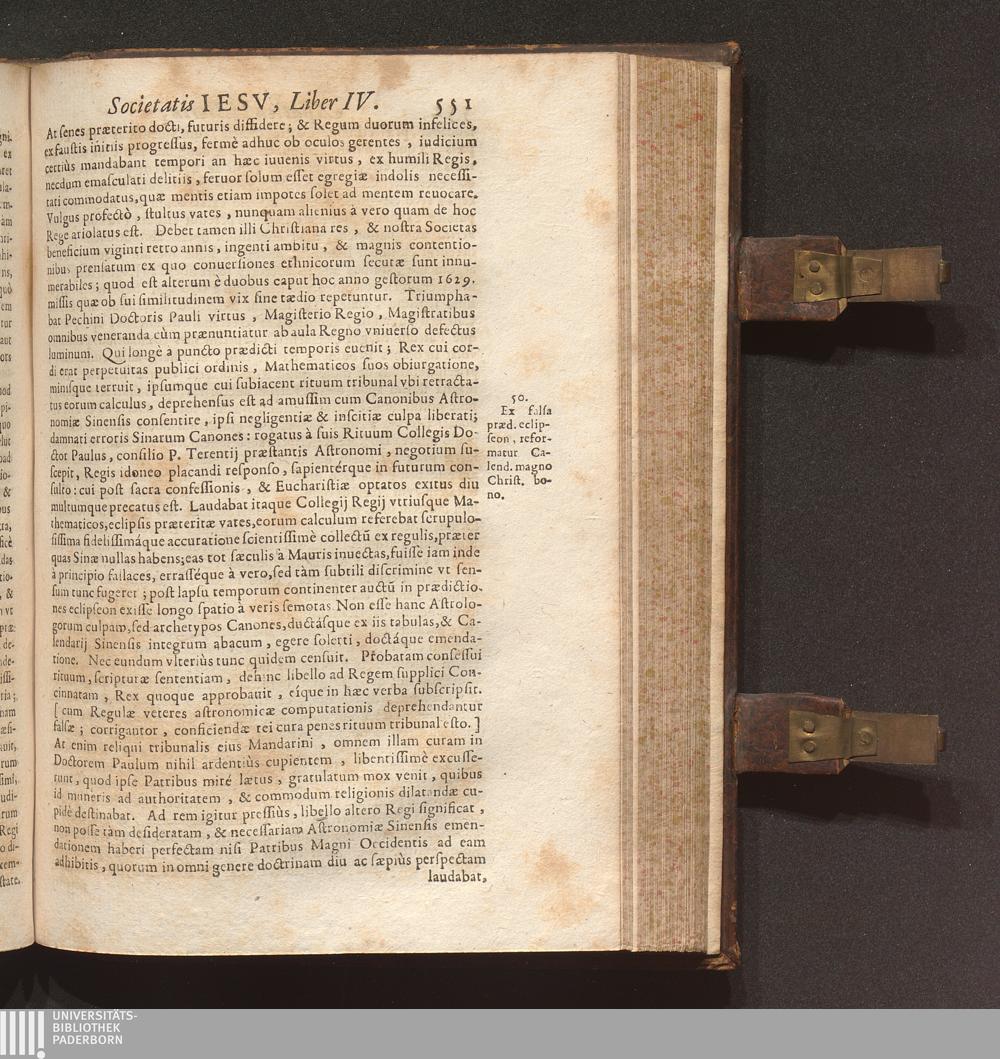 Societatis IESV, Liber IV. 551
At senes præterito docti, futuris diffidere; & Regum duorum infelices,
ex faustis initiis progressus, fermè adhuc ob oculos gerentes, iudicium
certiùs mandabant tempori an hæc iuuenis virtus, ex humili Regis,
necdum emasculati delitiis, feruor solum esset egregiæ indolis necessi-
tati commodatus, quæ mentis etiam impotes solet ad mentem reuocare.
Vulgus profectò, stultus vates, nunquam alienius à vero quam de hoc
Rege ariolatus est. Debet tamen illi Christiana res, & nostra Societas
beneficium viginti retro annis, ingenti ambitu, & magnis contentio-
nibus prensatum ex quo conuersiones ethnicorum secutæ sunt innu-
merabiles; quod est alterum è duobus caput hoc anno gestorum 1629.
missis quæ ob sui similitudinem vix sine tædio repetuntur. Triumpha-
bat Pechini Doctoris Pauli virtus, Magisterio Regio, Magistratibus
omnibus veneranda cùm prænuntiatur ab aula Regno vniuerso defectus
luminum. Qui longè à puncto prædicti temporis euenit; Rex cui cor-
di erat perpetuitas publici ordinis, Mathematicos suos obiurgatione,
minisque terruit, ipsumque cui subiacent rituum tribunal vbi retracta-
tus eorum calculus, deprehensus est ad amussim cum Canonibus Astro-
nomiæ Sinensis consentire, ipsi negligentiæ & inscitiæ culpa liberati;
damnati erroris Sinarum Canones: rogatus à suis Rituum Collegis Do-
ctor Paulus, consilio P. Terentij præstantis Astronomi, negotium su-
scepit, Regis idoneo placandi responso, sapientérque in futurum con-
sulto: cui post sacra confessionis, & Eucharistiæ optatos exitus diu
multumque precatus est. Laudabat itaque Collegij Regij vtriusque Ma-
thematicos, eclipsis præteritæ vates, eorum calculum referebat scrupulo-
sissima fidelissimáque accuratione scientissimè collectū ex regulis, præter
quas Sinæ nullas habens; eas tot sæculis à Mauris inuectas, fuisse iam inde
à principio fallaces, errasséque à vero, sed tàm subtili discrimine vt sen-
sum tunc fugeret; post lapsu temporum continenter auctū in prædictio-
nes eclipseon exisse longo spatio à veris semotas. Non esse hanc Astrolo-
gorum culpam, sed archetypos Canones, ductásque ex iis tabulas, & Ca-
lendarij Sinensis integrum abacum, egere solerti, doctáque emenda-
tione. Nec eundum vlteriùs tunc quidem censuit. Probatam consessui
rituum, scripturæ sententiam, dehinc libello ad Regem supplici Con-
cinnatam, Rex quoque approbauit, eíque in hæc verba subscripsit.
[ cum Regulæ veteres astronomicæ computationis deprehendantur
falsæ; corrigantor, conficiendæ rei cura penes rituum tribunal esto. ]
At enim reliqui tribunalis eius Mandarini, omnem illam curam in
Doctorem Paulum nihil ardentiùs cupientem, libentissimè excusse-
runt, quod ipse Patribus mirè lætus, gratulatum mox venit, quibus
id muneris ad authoritatem, & commodum religionis dilatandæ cu-
pidè destinabat. Ad rem igitur pressiùs, libello altero Regi significat,
non posse tàm desideratam, & necessariam Astronomiæ Sinensis emen-
dationem haberi perfectam nisi Patribus Magni Occidentis ad eam
adhibitis, quorum in omni genere doctrinam diu ac sæpiùs perspectam
laudabat,
50.
Ex falsa
præd. eclip-
seon, refor-
matur Ca-
lend. magno
Christ. bo-
no.
UNIVERSITÄTS-
BIBLIOTHEK
PADERBORN